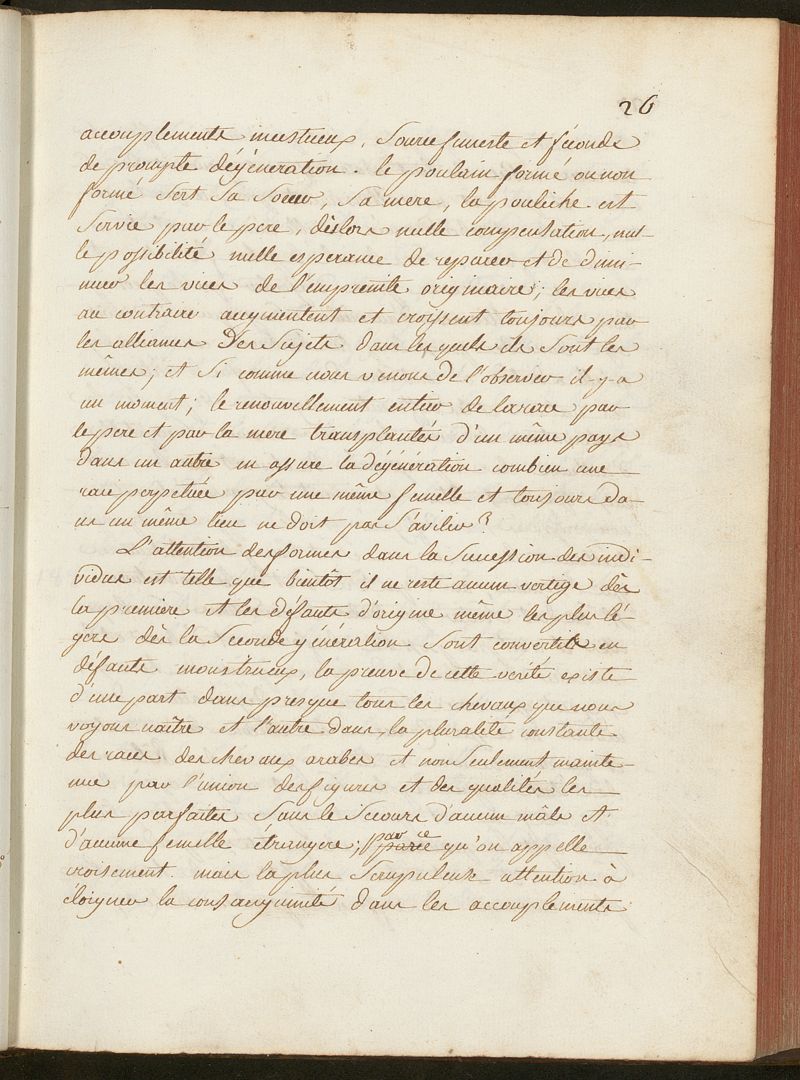 26
accouplements incestueux, Source funeste et féconde
de prompte dégéneration. le poulain formé ou non
formé Sert Sa Soeur, Sa mere, la pouliche est
Servie par le pere, dèslors nulle compensation, nul-
le possibilité nulle esperance de reparer et de dimi-
nuer les vices de l'empreinte originaire; les vices
au contraire augmentent et croissent toujours par
les alliances Des Sujets dans lesquels ils Sont les
mêmes; et Si comme nous venons de l'observer il-y-a
un moment; le renouvellement entier de la race par
le pere et par la mere transplantés d'un même pays
dans un autre en assure la dégéneration combien une
race perpetuée par une même femelle et toujours da-
ns un même lieu ne doit pas S'avilir?
L'attention des formes dans la Succession des indi-
vidus est telle que bientôt il ne reste aucun vertige dès
la premiere et les défauts d'origine même les plus lé-
gers dès la Seconde génération Sont convertits en
défauts monstrueux, la preuve de cette verité existe
d'une part dans presque tous les chevaux que nous
voyons naître et l'autre dans la pluralité constante
des races des chevaux arabes et non Seulement mainte-
nue par l'union des figures et des qualités les
plus parfaites Sans le Secours d'aucun mâle et
d'aucune femelle étrangere; par ce qu'on appelle
croisement. mais la plus Scrupuleuse attention à
éloigner la consanguinité dans les accouplements